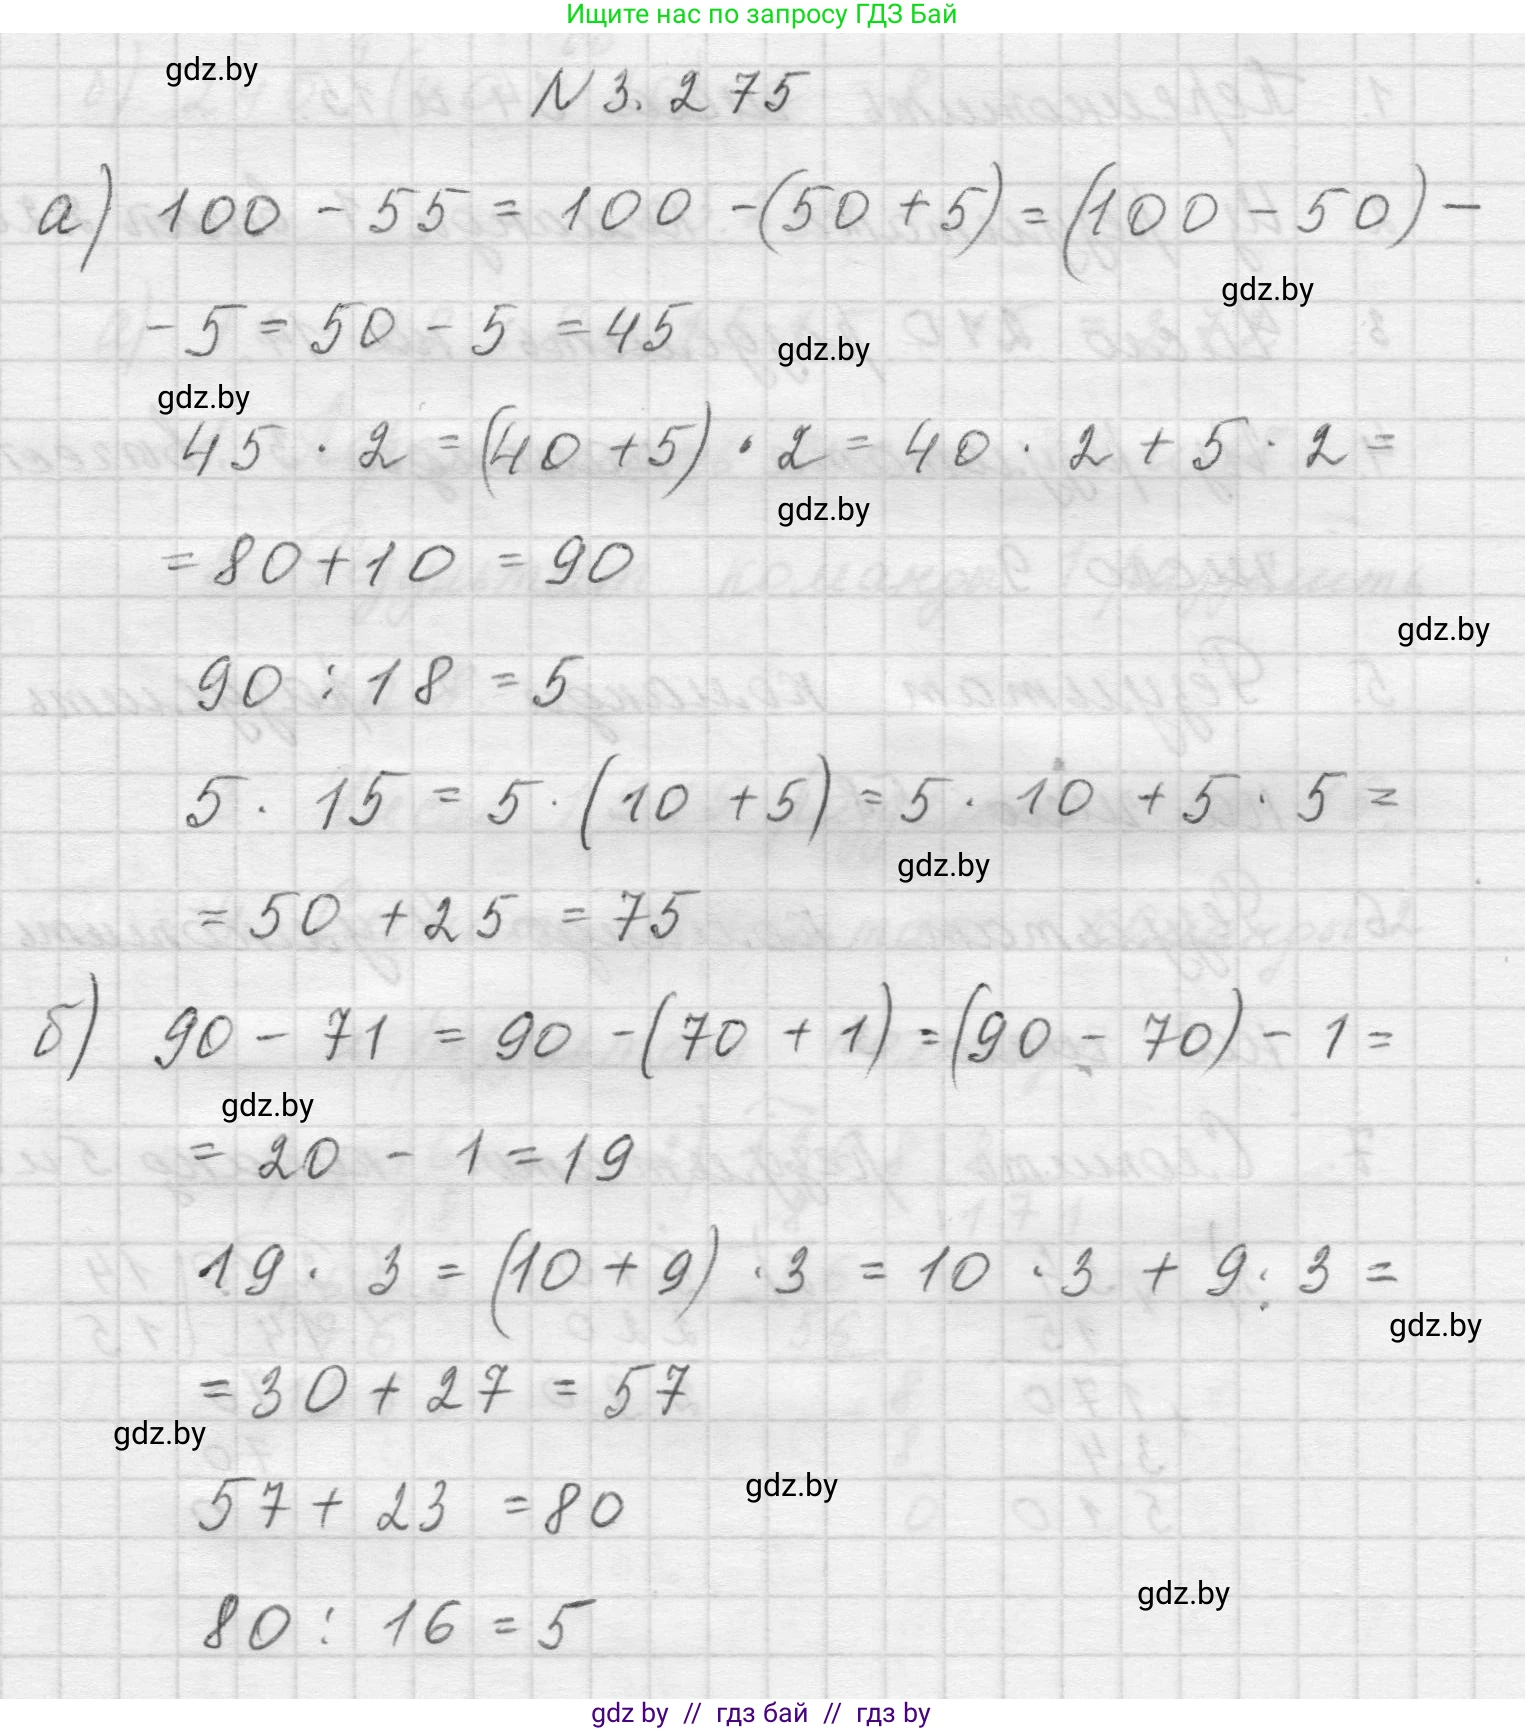 Ищите нас по запросу ГДЗ Бай
gdz.by
N 3.275
а) 100 - 55 = 100 - (50 + 5) = (100 - 50) -
gdz.by
- 5 = 50 - 5 = 45
gdz.by
gdz.by
45 · 2 = (40 + 5) · 2 = 40 · 2 + 5 · 2 =
gdz.by
= 80 + 10 = 90
gdz.by
90 : 18 = 5
5 · 15 = 5 · (10 + 5) = 5 · 10 + 5 · 5 =
gdz.by
= 50 + 25 = 75
б) 90 - 71 = 90 - (70 + 1) = (90 - 70) - 1 =
gdz.by
= 20 - 1 = 19
19 · 3 = (10 + 9) · 3 = 10 · 3 + 9 : 3 =
gdz.by
= 30 + 27 = 57
gdz.by
57 + 23 = 80
gdz.by
80 : 16 = 5
gdz.by
gdz by // гдз бай // гдз by